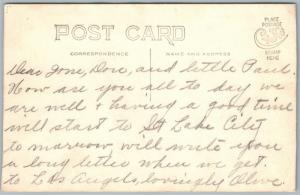 POST CARD
CORRESPONDENCE
NAME AND ADDRESS
PLACE
POSTAGE
STAMP
HERE
Dear Jone, Don, and little Paul.
How are you all to day we
are well & having a good time
will start to St Lake City
to marrow will write you
a long letter when we get
to Los Angels, lovingly Olive